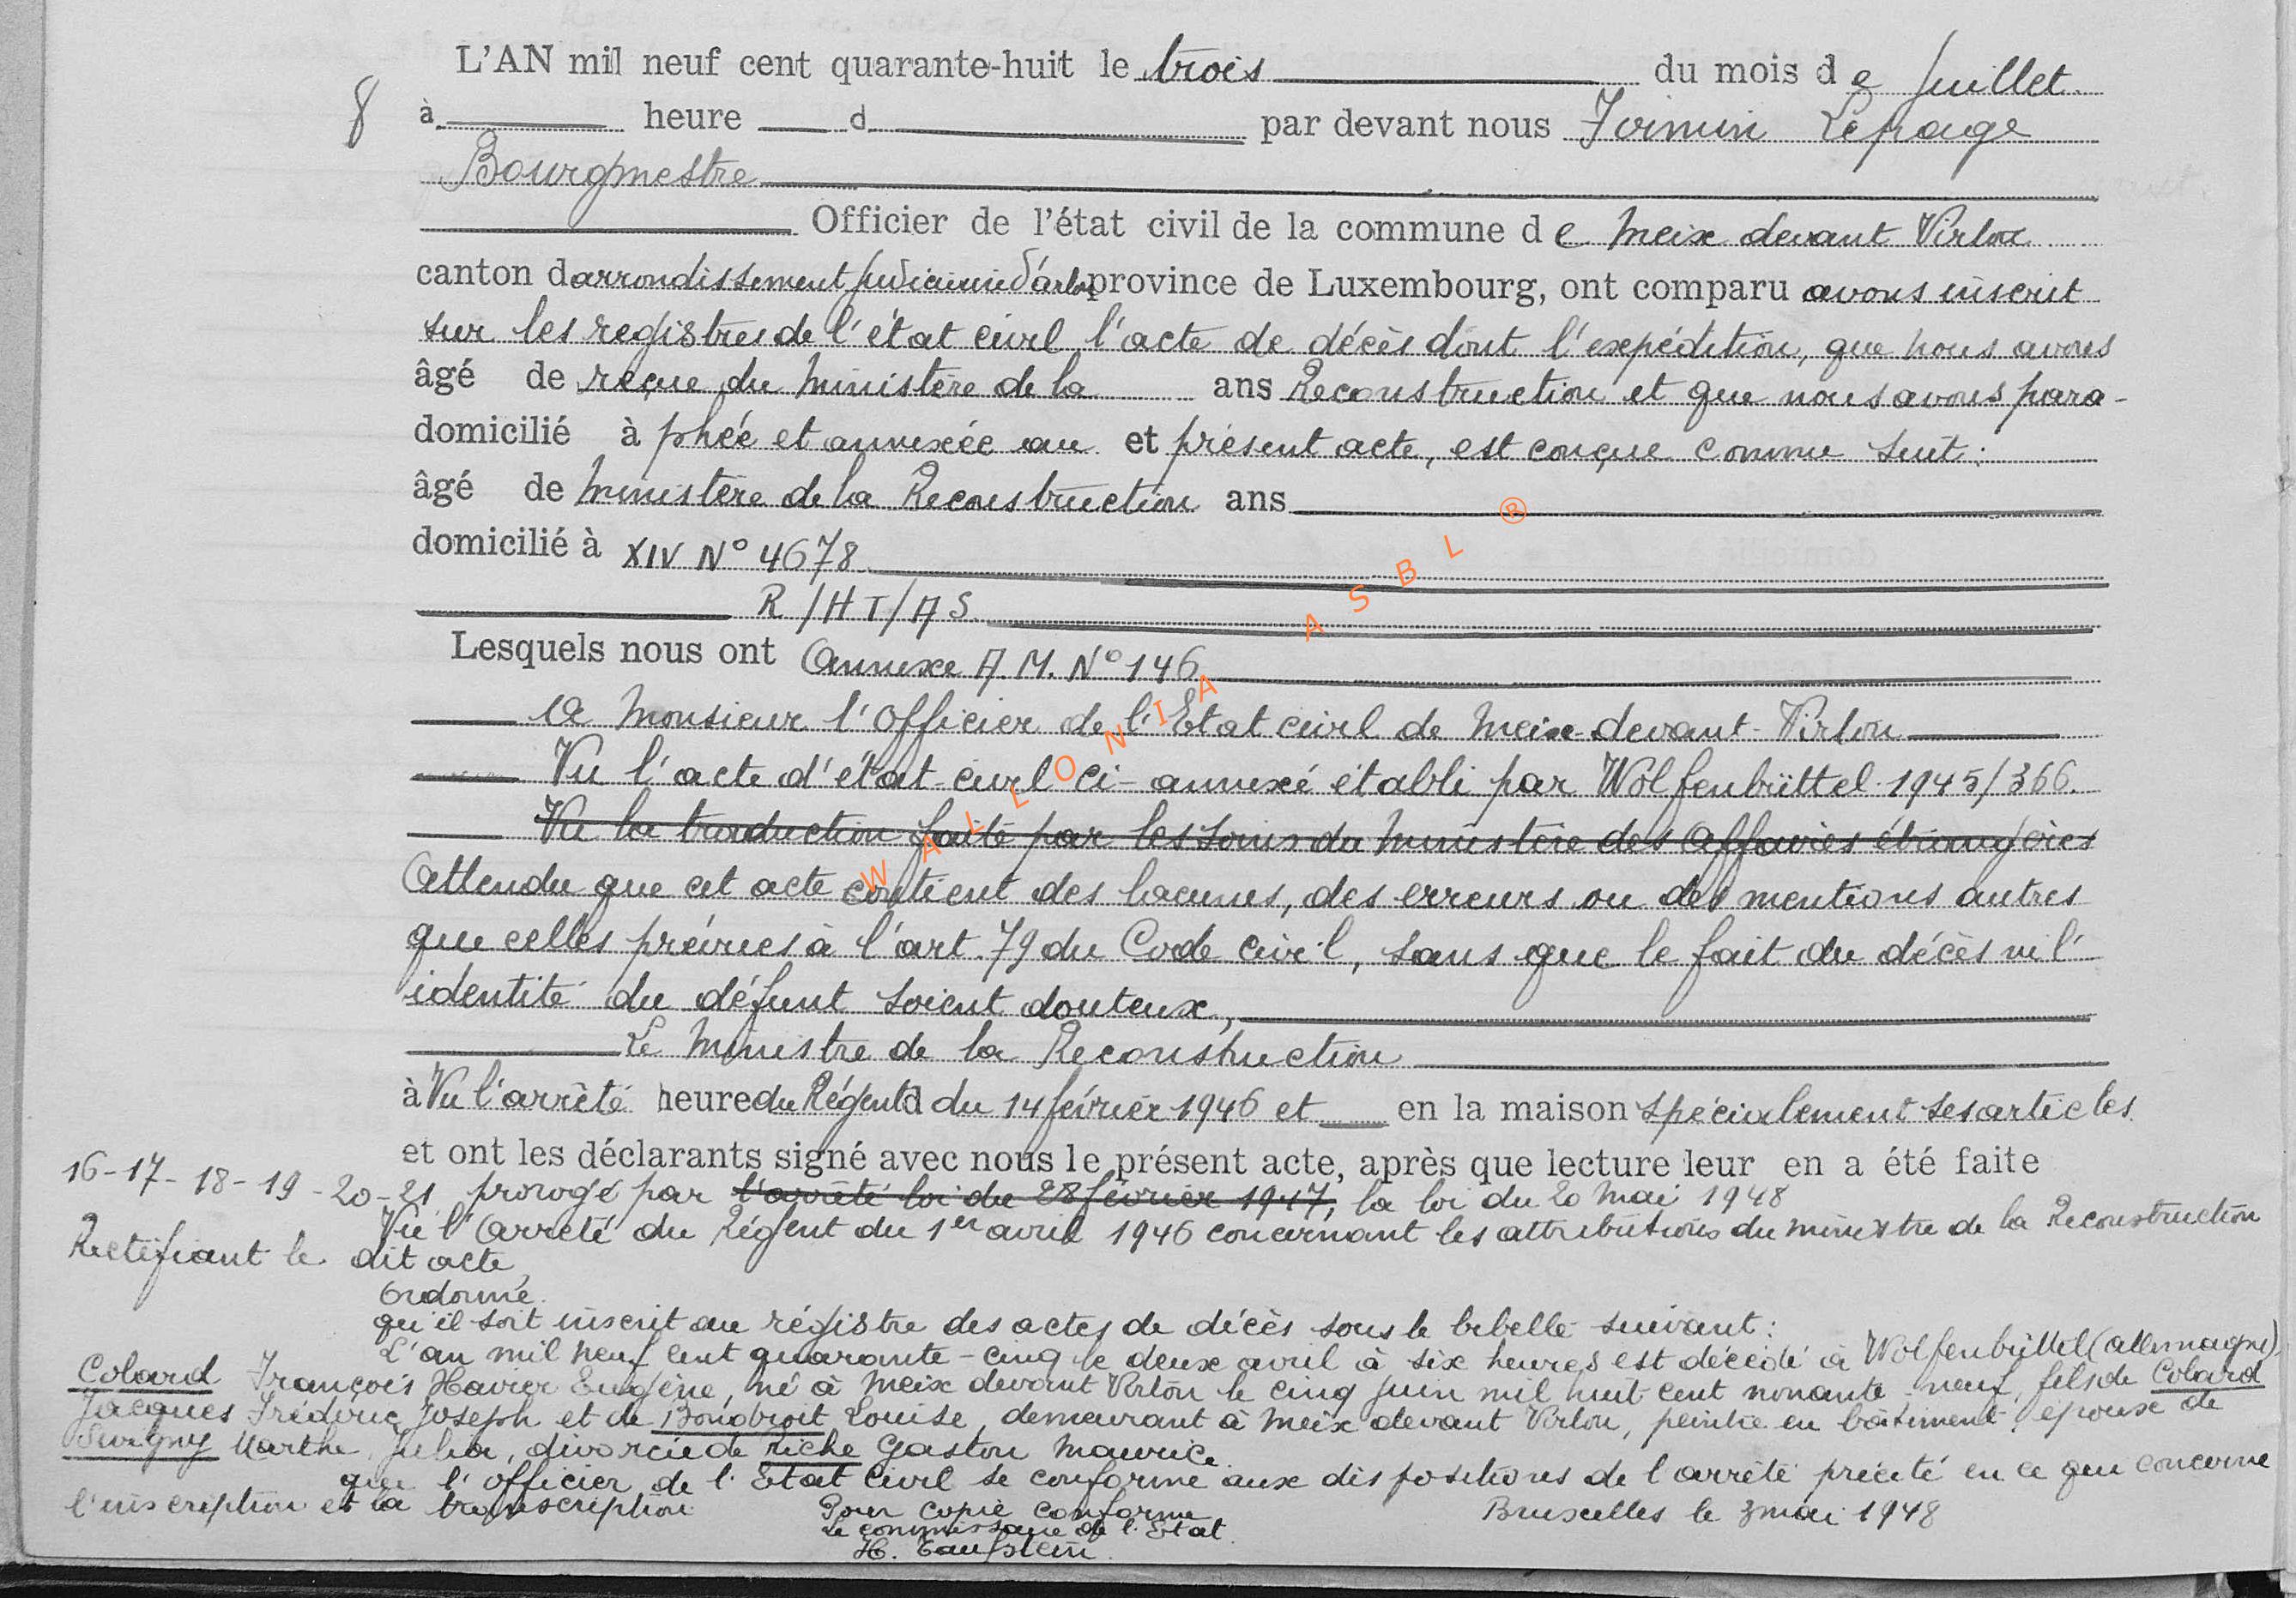 L'AN mil neuf cent quarante-huit le trois du mois de Juillet
8 à heure d par devant nous Firmin Lepage
Bourgmestre
Officier de l'état civil de la commune de Meix devant Virton
canton d arrondissement judiciaire d'Arlon province de Luxembourg, ont comparu avons inscrit
sur les registres de l'état civil l'acte de décès dont l'expédition, que nous avons
âgé de reçue du Ministère de la ans Reconstruction et que nous avons para-
domicilié à phée et annexée au et présent acte, est conçue comme suit :
âgé de Ministère de la Reconstruction ans
domicilié à XIV N° 4678
R/HT/AS
Lesquels nous ont Annexe A.M. N° 146
A Monsieur l'Officier de l'Etat civil de Meix-devant-Virton
Vu l'acte d'état-civil ci-annexé établi par Wolfenbüttel 1945/366.
Vu la traduction faite par les soins du Ministère des Affaires étrangères
Attendu que cet acte contient des lacunes, des erreurs ou des mentions autres
que celles prévues à l'art. 79 du Code civil, sans que le fait du décès ni l'
identité du défunt soient douteux,
Le Ministre de la Reconstruction
à Vu l'arrêté heure du Régent d du 14 février 1946 et en la maison spécialement ses articles
et ont les déclarants signé avec nous le présent acte, après que lecture leur en a été faite
16-17-18-19-20-21 prorogé par l'arrêté loi du 28 février 1947, la loi du 20 Mai 1948
Vu l'Arrêté du Régent du 1er avril 1946 concernant les attributions du ministre de la Reconstruction
Rectifiant le dit acte,
Ordonne
qu'il soit inscrit au régistre des actes de décès sous le libellé suivant :
L'an mil neuf cent quarante-cinq le deux avril à six heures est décédé à Wolfenbüttel (Allemagne),
Colard François Xavier Eugène, né à Meix devant Virton le cinq juin mil huit cent nonante-neuf, fils de Colard
Jacques Frédéric Joseph et de Bonabroit Louise, demeurant à Meix devant Virton, peintre en bâtiment, époux de
Surigny Marthe Julia, divorcée de Riche Gaston Maurice.
que l'Officier de l'Etat Civil se conforme aux dispositions de l'arrêté précité en ce qui concerne
l'inscription et la transcription
Bruxelles le 3 mai 1948
Pour copie conforme
Le commissaire de l'Etat
H. Taufstein
WALLONIA ASBL ®